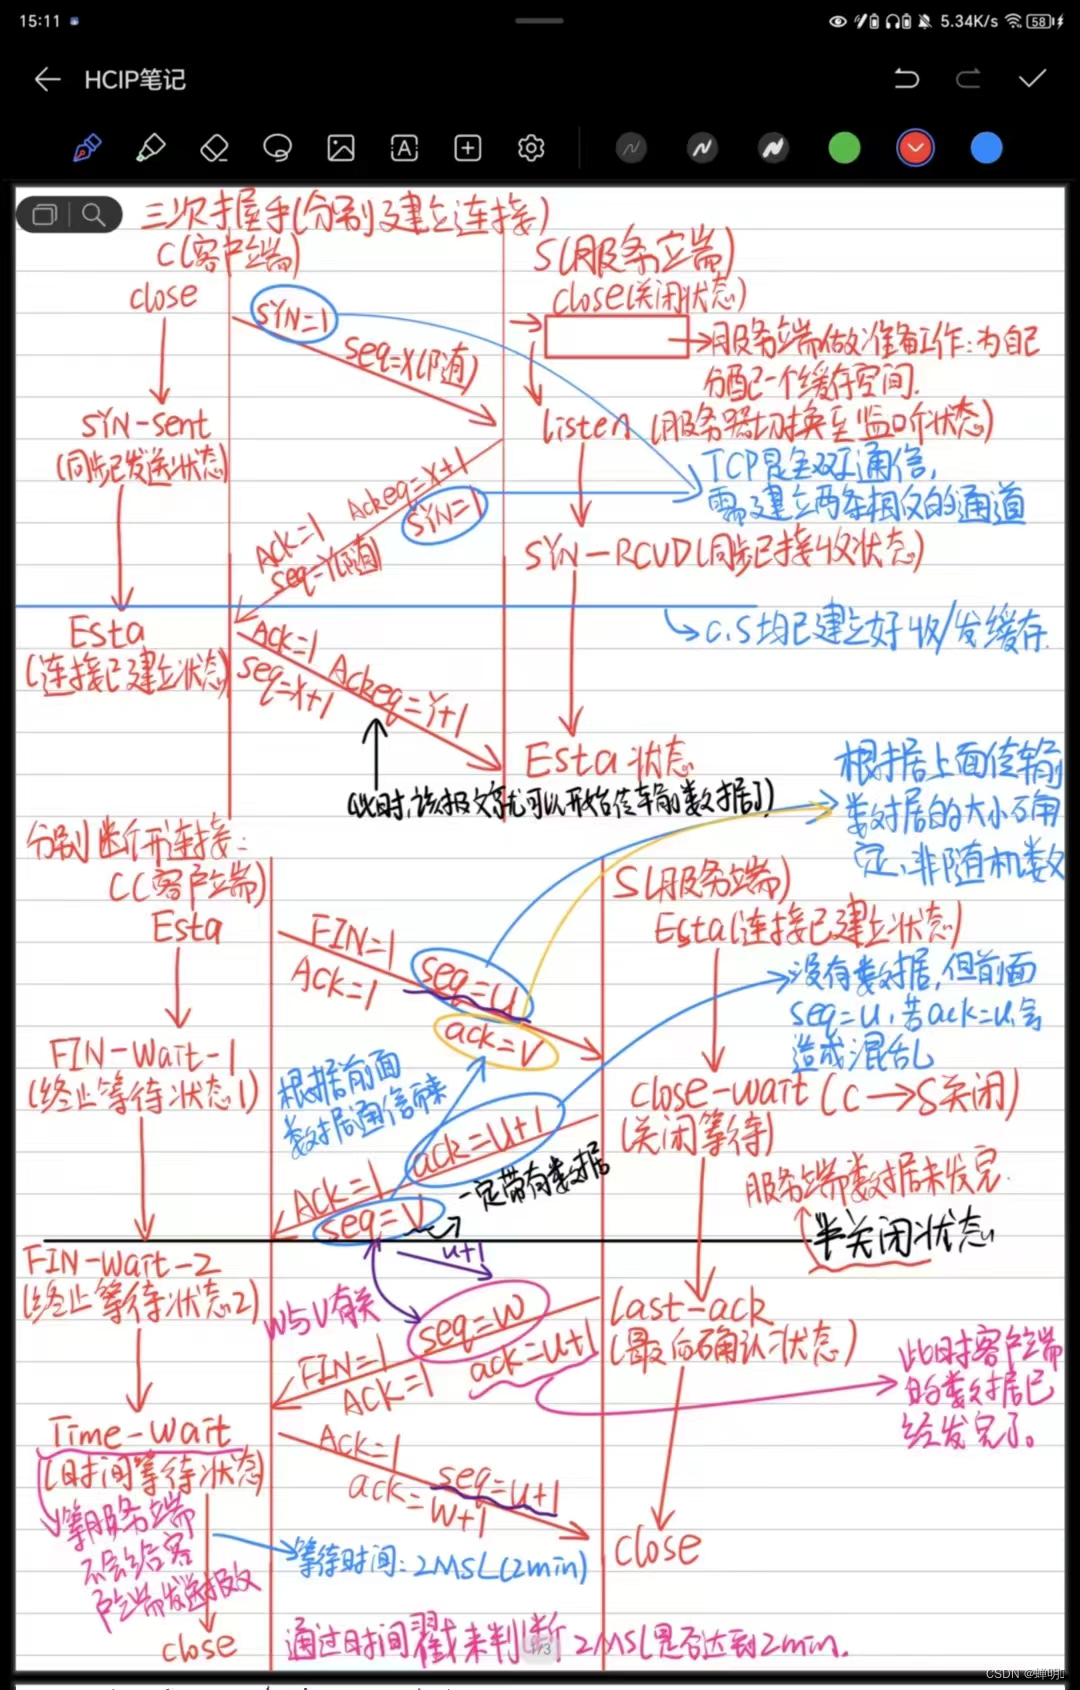 15:11
5.34K/s
58
HCIP笔记
三次握手(分别建立连接)
C(客户端)
S(服务端)
close
close(关闭状态)
SYN=1
seq=X(随)
服务端做准备工作:为自己
分配一个缓存空间.
SYN-Sent
(同步已发送状态)
listen (服务器切换至监听状态)
TCP是全双工通信,
需建立两条相反的通道
Ackeq=X+1
SYN=1
Ack=1
seq=Y(随)
SYN-RCVD(同步已接收状态)
C.S均已建立好收/发缓存.
Esta
(连接已建立状态)
Ack=1
seq=X+1
Ackeq=Y+1
Esta状态
(此时,该报文就可以开始传输数据了)
根据上面传输
数据的大小确
定,非随机数
分别断开连接:
C(客户端)
S(服务端)
Esta
Esta(连接已建立状态)
FIN=1
ACK=1
seq=u
ack=v
没有数据,但前面
seq=u,若ack=u,会
造成混乱
FIN-Wait-1
(终止等待状态1)
根据前面
数据通信而来
close-wait (C→S关闭)
(关闭等待)
ack=u+1
ACK=1
seq=V
一定带有数据
服务端数据未发完.
半关闭状态
u+1
FIN-Wait-2
(终止等待状态2)
W与V有关
seq=W
ack=u+1
FIN=1
ACK=1
last-ack
(最后确认状态)
此时客户端
的数据已
经发完了。
Time-Wait
(时间等待状态)
Ack=1
seq=u+1
ack=W+1
等服务端
不会给客
户端发送报文
等待时间:2MSL(2min)
close
close
通过时间戳来判断2MSL是否达到2min.
1/3